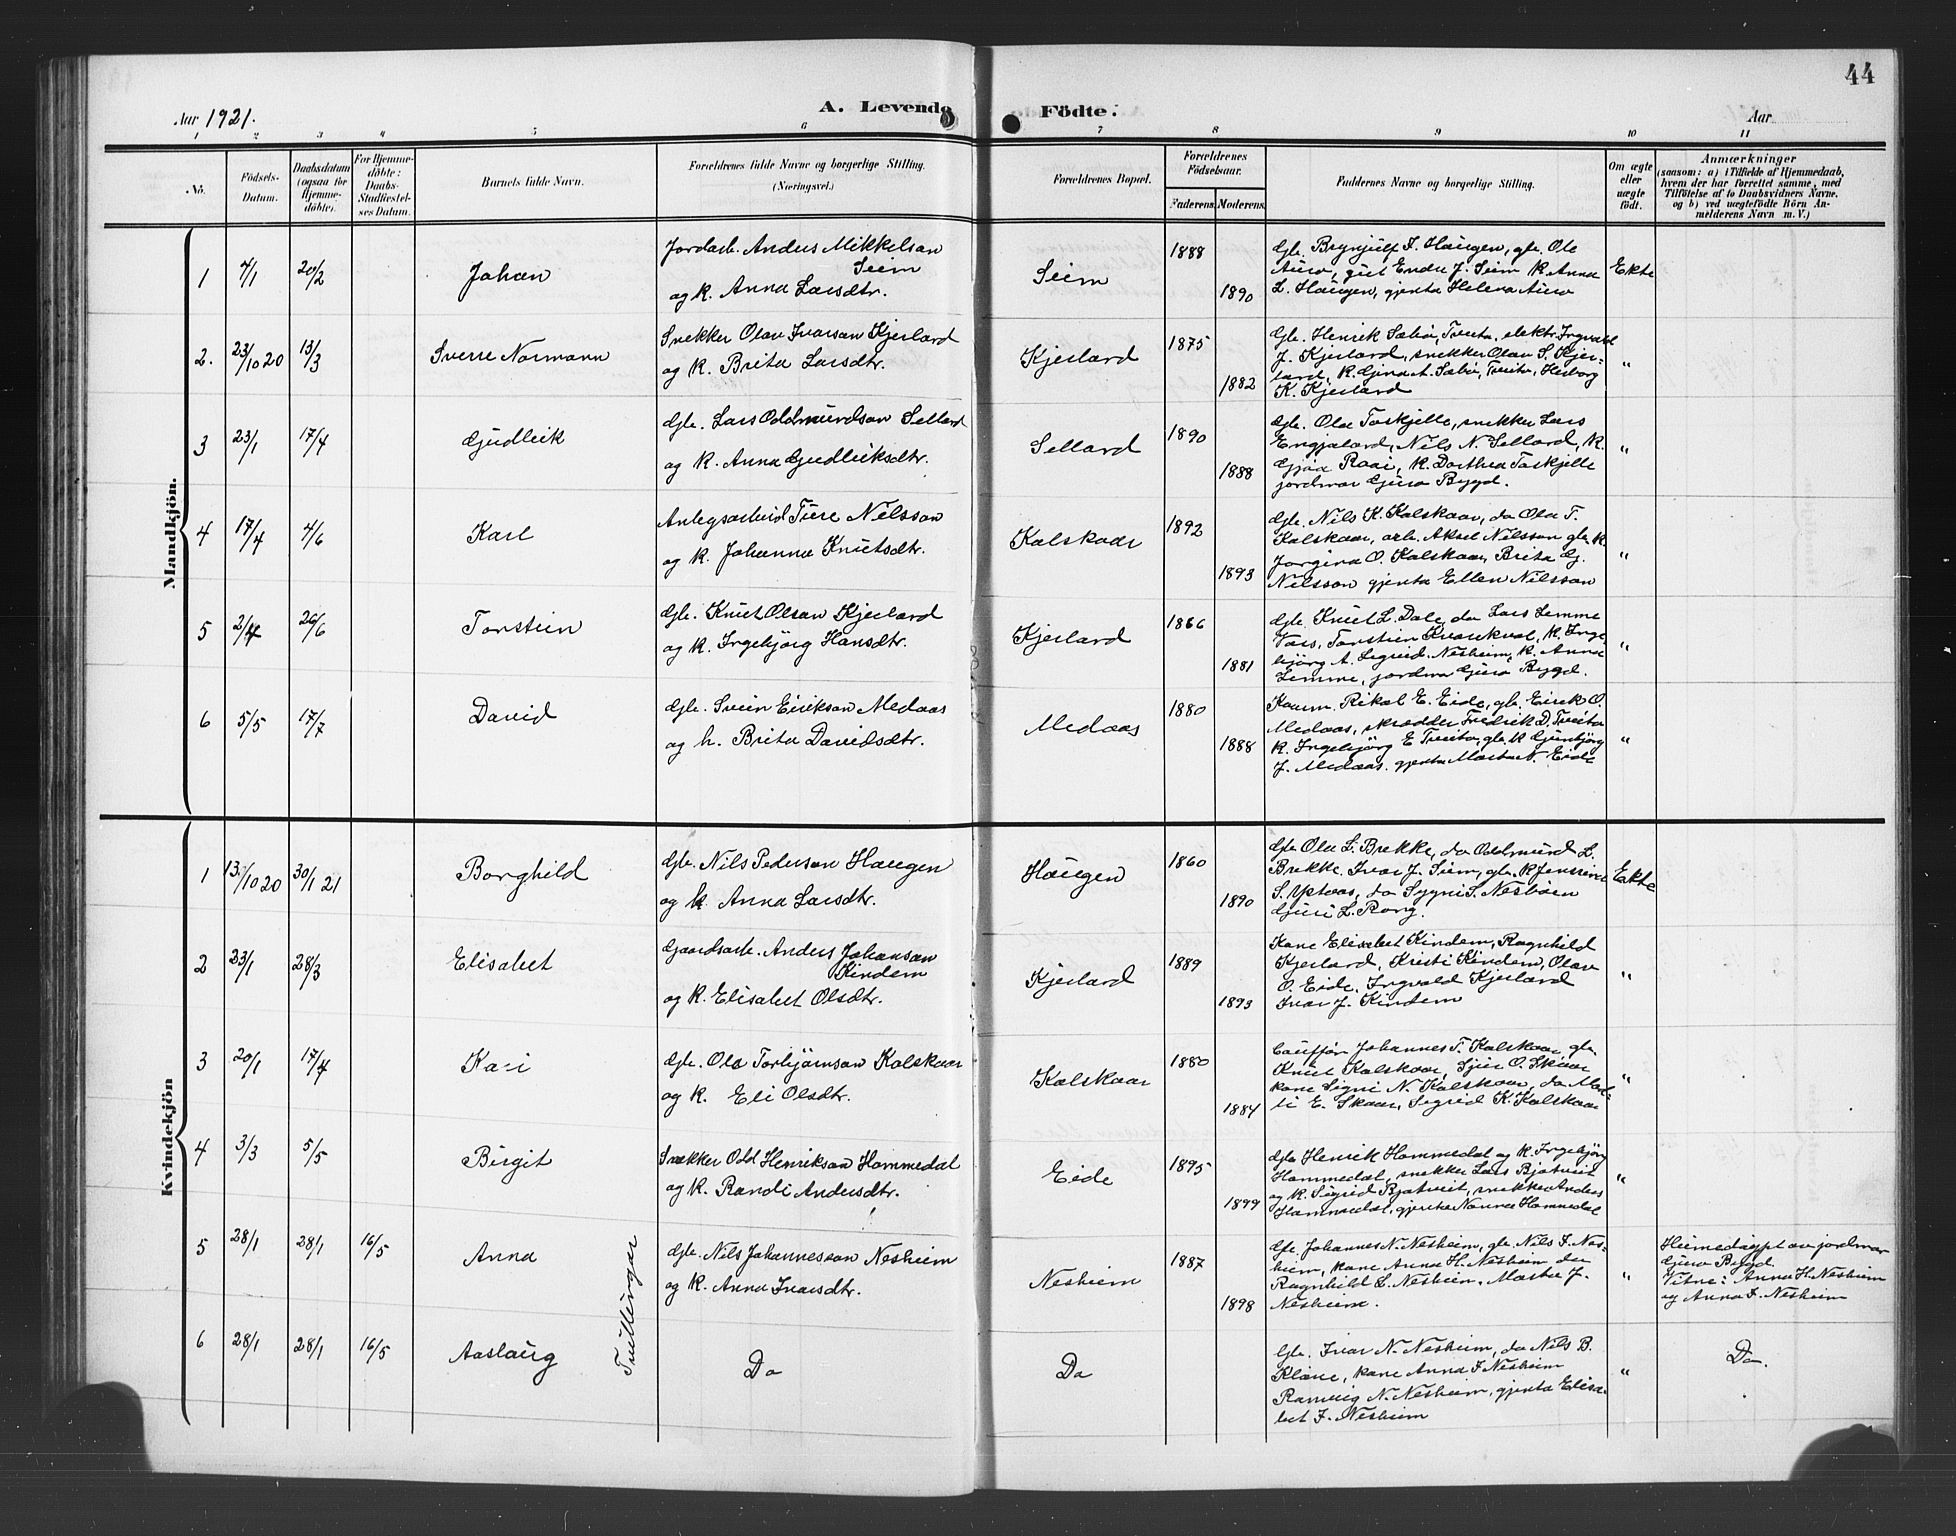 44
Aar 1921.
A. Levende Födte.
Aar
1 2 3 4 5 6 7 8 9 10 11
No.
Födsels-Datum.
Daabsdatum (ogsaa for Hjemme-döbte).
For Hjemme-döbte: Daabs-Stadfæstel-ses Datum.
Barnets fulde Navn.
Forældrenes fulde Navne og borgerlige Stilling. (Næringsvei.)
Forældrenes Bopæl.
Forældrenes Födselsaar.
Faderens. Moderens.
Faddernes Navne og borgerlige Stilling.
Om ægte eller uægte født.
Anmærkninger
(saasom: a) i Tilfælde af Hjemmedaab,
hvem der har forrettet samme, med
Tilföielse af to Daabsvidners Navne.
og b) ved uægtefödte Börn An-
melderens Navn m. V.)
Mandkjön.
1 4/1 20/2 Johan
Jordarb. Anders Mikkelson
Seim
og k. Anna Larsdtr.
Seim 1888 1890
Gb. Brynjulf I. Haugen, gb. Ola
Auro, gut Endre J. Seim k. Anna
L. Haugen, gjenta Helena Auro
Ekte
2. 23/10 20 13/3 Sverre Normann
Snekker Olav Ivarson Kjerland
og k. Brita Larsdtr.
Kjerland 1875 1882
Gb. Henrik Sæbø, Tveito, elektr. Ingvald
J. Kjerland, snekker Olav S. Kjer-
land, k. Gjina A. Sæbø, Tveito, Herborg
K. Kjerland
"
3 23/1 17/4 Gudleik
Gb. Lars Oddmundson Selland
og k. Anna Gudleiksdtr.
Selland 1890 1888
Gb. Ola Torskjelle, snekker Lars
Engjaland, Nils N. Selland, k.
Gjoa Raai, k. Dorthea Torskjelle
jordmor Guro Bygd.
"
4 17/4 4/6 Karl
Anlegsarbeid Ture Nilsson
og k. Johanna Knutsdtr.
Kolskaar 1892 1893
Gb. Nils K. Kolskaar, do Ola T.
Kolskaar, arb. Aksel Nilsson gb. k.
Jorgina O. Kolskaar, Brita G.
Nilsson gjenta Ellen Nilsson
"
5 2/4 26/6 Torstein
Gb. Knut Olson Kjerland
og k. Ingebjörg Hansdtr.
Kjerland 1866 1881
Gb. Knut L. Dale, do Lars Lemme
Vors, Torstein Kvarekval, k. Inge-
björg A. Sigrid Nesheim, k. Anna
Lemme, jordmo Guro Bygd.
"
6 5/5 17/7 David
Gb. Svein Eirikson Medaas
og h. Brita Davidsdtr.
Medaas 1880 1888
Kaum. Rikal E. Eide, gb. Eirik O.
Medaas, skrædder Fredrik D. Tveito
k. Ingebjörg E Tveito, gb. k Gunbjörg
J. Medaas. gjenta Marta N. Eide
"
Kvindekjön
1 13/10 20 30/1 21 Borghild
Gb. Nils Pederson Haugen
og k. Anna Larsdtr.
Haugen 1860 1890
Gb Ola L. Brekke, do Oddmund L.
Brekke Ivar J. Seim, gb. k Jenssine
S. Ystaas, do Sygni S. Nesbøen
Guri L. Rong.
Ekte
2 23/1 28/3 Elisabet
Gaardsarb. Anders Johanson
Kindem
og k. Elisabet Olsdtr.
Kjerland 1889 1893
Kone Elisabet Kindem, Ragnhild
Kjerland, Kristi Kindem, Olav
O. Eide, Ingvald Kjerland
Ivar J. Kindem
"
3 20/1 17/4 Kari
Gb. Ola Torbjørnson Kolskaar
og k. Eli Olsdtr.
Kolskaar 1880 1884
Cauffør Johannes T. Kolskaar, gb.
Knut Kolskaar, Sjur O. Skaar
kone Signi N. Kolskaar, do Mad-
li E. Skaar, Sigrid K. Kolskaar
"
4 3/3 5/5 Birgit
Snekker Odd Henrikson Hommedal
og k. Randi Andersdtr.
Eide 1895 1899
Gb Henrik Hommedal og k. Ingebjörg
Hommedal, snekker Lars Bjotveit
og k. Sigrid Bjotveit, snekker Anders
Hommedal, gjenta Nanna Hommedal
"
5 28/1 28/1 16/5 Anna
Tvillingar
Gb. Nils Johannesson Nesheim
og k. Anna Ivarsdtr.
Nesheim 1887 1898
Gb. Johannes N. Nesheim, gb. Nils I. Nes-
heim, kone Anna H. Nesheim do
Ragnhild L. Nesheim, Marta J.
Nesheim.
"
Heimedöypt av jordmor
Guro Bygd.
Vitne: Anna H. Nesheim
og Anna I. Nesheim
6 28/1 28/1 16/5 Aaslaug
Do
Do
Gb. Ivar N. Nesheim, do Nils B.
Kløve, kone Anna I Nesheim
Ranveig N. Nesheim, gjenta Elisa-
bet I. Nesheim
"
Do.